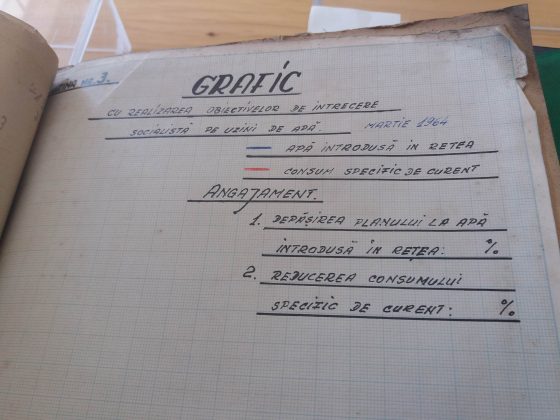 NR. 3.
GRAFIC
CU REALIZAREA OBIECTIVELOR DE INTRECERE
SOCIALISTĂ PE UZINI DE APĂ. MARTIE 1964
APĂ INTRODUSĂ IN REȚEA
CONSUM SPECIFIC DE CURENT
ANGAJAMENT.
1. DEPĂȘIREA PLANULUI LA APĂ
INTRODUSĂ ÎN REȚEA: %
2. REDUCEREA CONSUMULUI
SPECIFIC DE CURENT: %